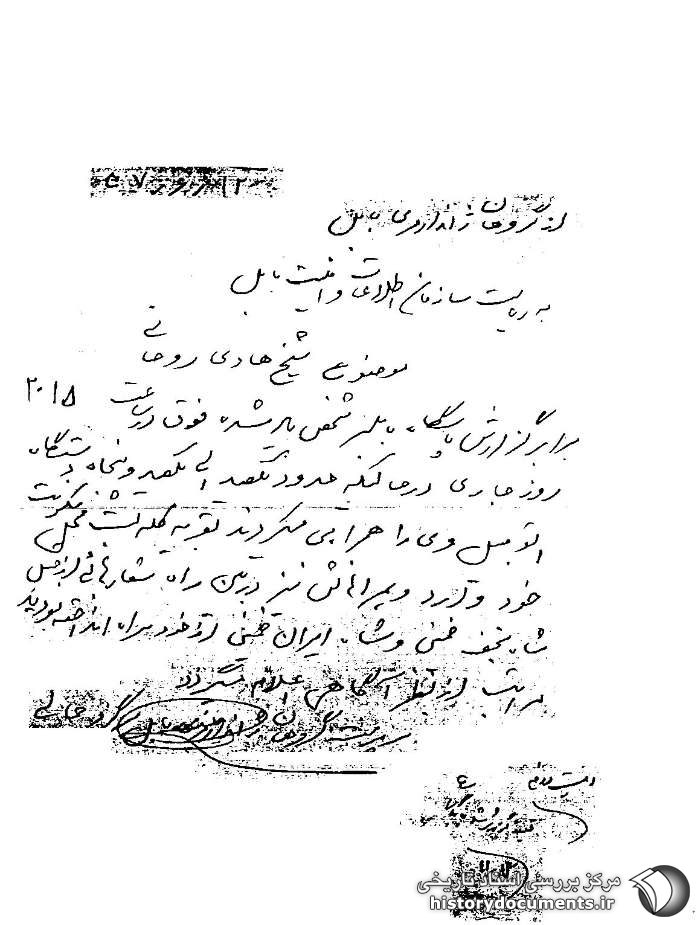 از گروهان ژاندارمری بابل
به ریاست سازمان اطلاعات و امنیت بابل
موضوع شیخ هادی روحانی
برابر گزارش پاسگاه بابلسر شخص یاد شده فوق در ساعت ۲۰۱۵
روز جاری در حالیکه حدود یکصد الی یکصد و پنجاه دستگاه
اتومبیل وی را همراهی میکردند
خود وارد و همراهانش نیز در بین راه شعارهائی از قبیل
شاه نجف خمینی و شاه ایران خمینی از خود براه انداخته بودند
مراتب از نظر آگاهی اعلام میگردد
گروهان ژاندارمری بابل
مرکز بررسی اسناد تاریخی
historydocuments.ir